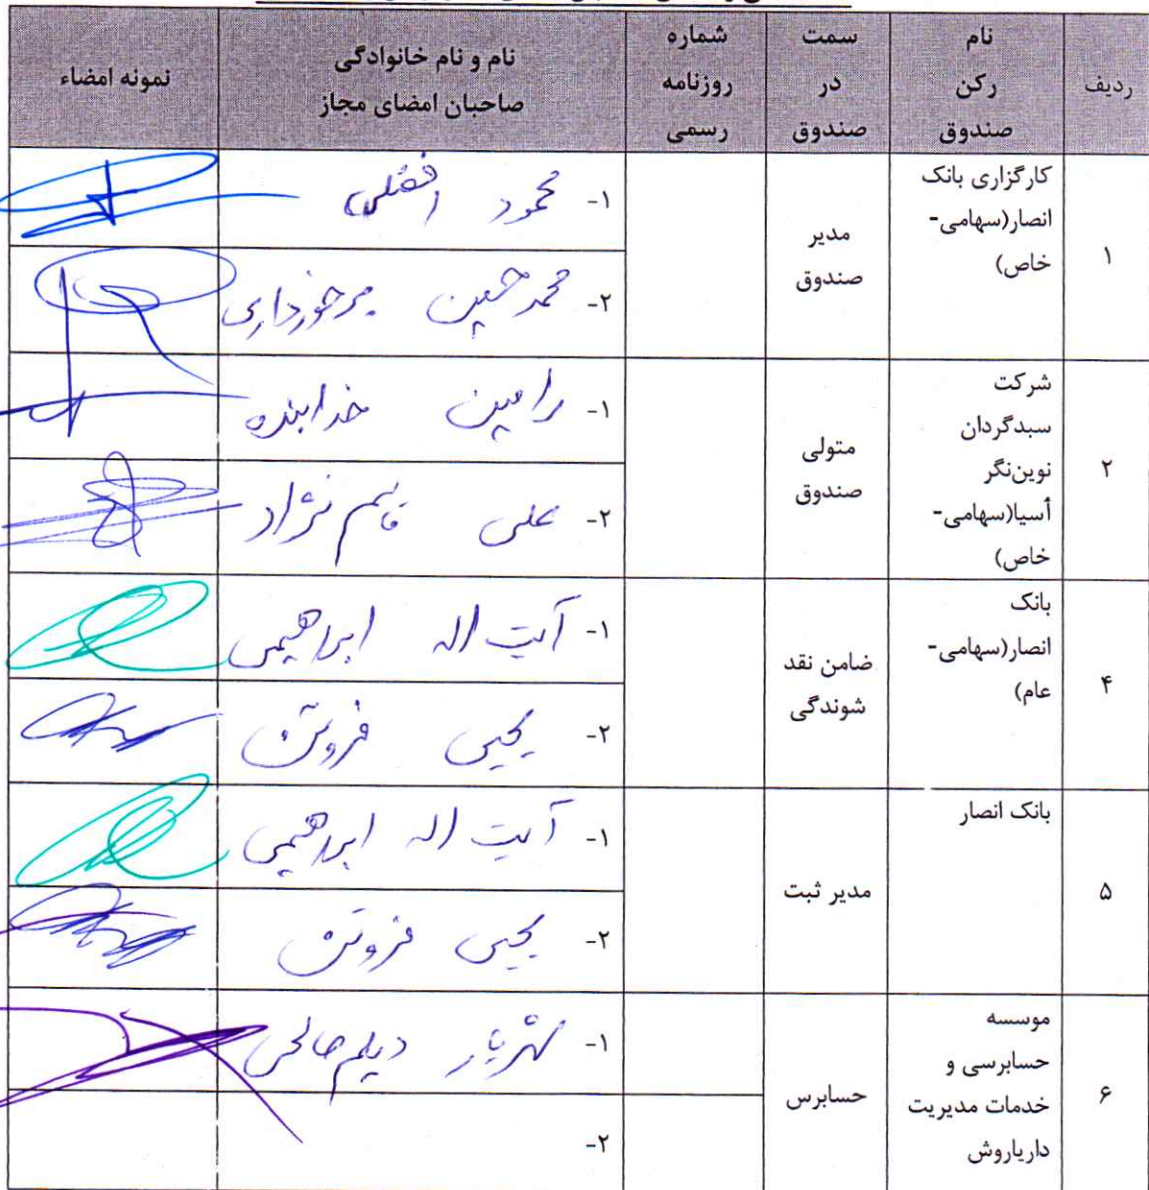 ردیف
نام
رکن
صندوق
سمت
در
صندوق
شماره
روزنامه
رسمی
نام و نام خانوادگی
صاحبان امضای مجاز
نمونه امضاء
۱
کارگزاری بانک
انصار(سهامی-
خاص)
مدیر
صندوق
۱- محمود افضلی
۲- محمدحسین برخورداری
۲
شرکت
سبدگردان
نوین‌نگر
آسیا(سهامی-
خاص)
متولی
صندوق
۱- رامین خدابنده
۲- علی قاسم نژاد
۴
بانک
انصار(سهامی-
عام)
ضامن نقد
شوندگی
۱- آیت اله ابراهیمی
۲- یحیی فروتن
۵
بانک انصار
مدیر ثبت
۱- آیت اله ابراهیمی
۲- یحیی فروتن
۶
موسسه
حسابرسی و
خدمات مدیریت
داریاروش
حسابرس
۱- شهریار دیلم صالحی
۲-